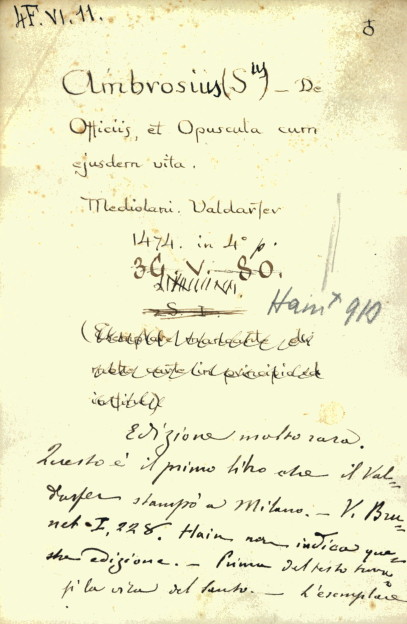 4F.VI.11.
Ambrosius (Sᵘˢ) – De
Officiis, et Opuscula cum
ejusdem vita.
Mediolani. Valdarfer
1474. in 4° p.
3G. V. 80.
S. I.
Hain 910
(Exemplar mancante di
molte carte in principio ed
in fine)
Edizione molto rara.
Questo è il primo libro che il Val-
darfer stampò a Milano. – V. Bru-
net I, 228. Hain non indica que-
sta edizione. – Prima del testo trova-
si la vita del Santo. – L'esemplare